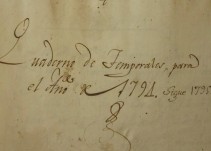 Quaderno de Temporales, para
el Año de 1794. Sigue 1795